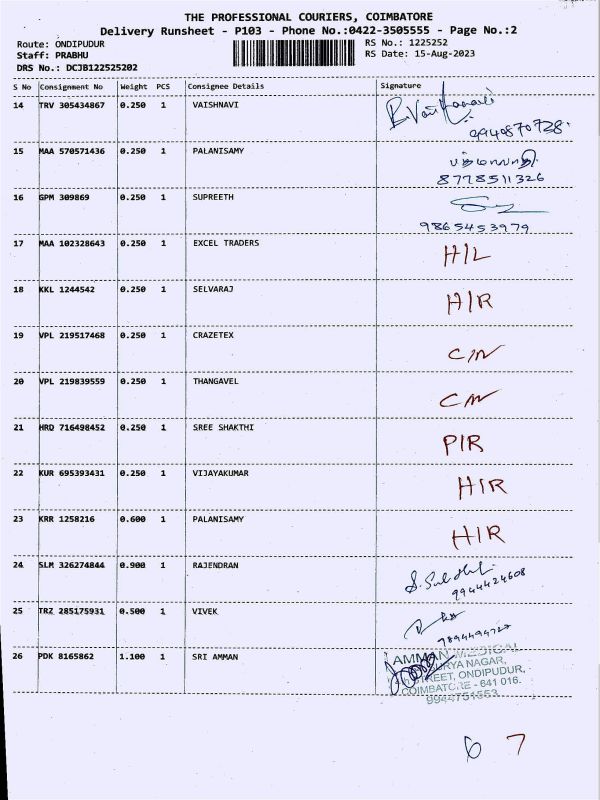 THE PROFESSIONAL COURIERS, COIMBATORE
Delivery Runsheet - P103 - Phone No.:0422-3505555 - Page No.:2
Route: ONDIPUDUR RS No.: 1225252
Staff: PRABHU RS Date: 15-Aug-2023
DRS No.: DCJB122525202
S No Consignment No Weight PCS Consignee Details Signature
14 TRV 305434867 0.250 1 VAISHNAVI
9940870728.
15 MAA 570571436 0.250 1 PALANISAMY
8778511326
16 GPM 309869 0.250 1 SUPREETH
9865453979
17 MAA 102328643 0.250 1 EXCEL TRADERS H/L
18 KKL 1244542 0.250 1 SELVARAJ H/R
19 VPL 219517468 0.250 1 CRAZETEX C/N
20 VPL 219839559 0.250 1 THANGAVEL C/N
21 HRD 716498452 0.250 1 SREE SHAKTHI PIR
22 KUR 695393431 0.250 1 VIJAYAKUMAR HIR
23 KRR 1258216 0.600 1 PALANISAMY HIR
24 SLM 326274844 0.900 1 RAJENDRAN
9944424608
25 TRZ 285175931 0.500 1 VIVEK
9894494727
26 PDK 8165862 1.100 1 SRI AMMAN AMMAN MEDICAL
SURYA NAGAR,
STREET, ONDIPUDUR,
COIMBATORE - 641 016.
9944751553
6 7